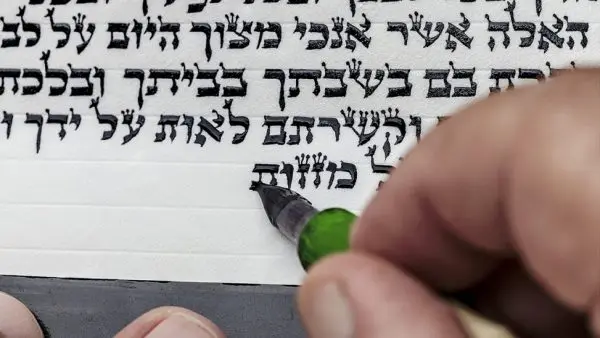 האלה אשר אנכי מצוך היום על לב
בם בשבתך בביתך ובלכת
וקשרתם לאות על ידך ו
מזזות